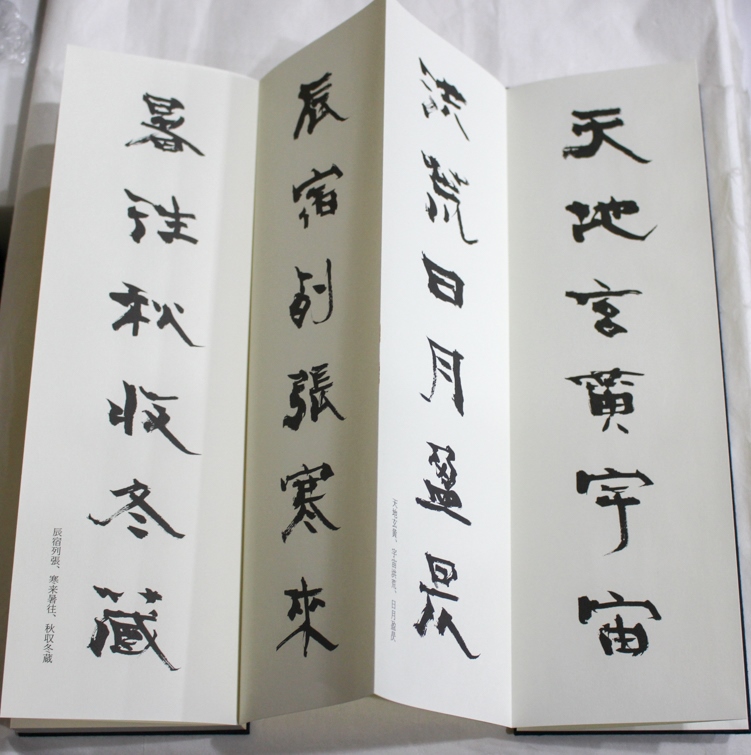 天地玄黃宇宙
洪荒日月盈昃
天地玄黄、宇宙洪荒、日月盈昃
辰宿列張寒來
暑往秋收冬藏
辰宿列張、寒来暑往、秋収冬蔵